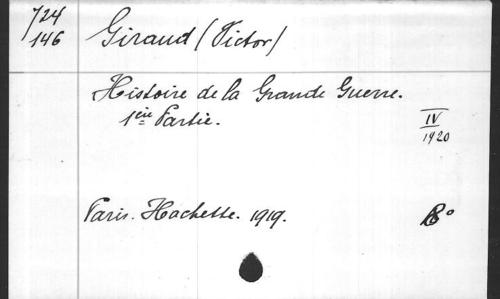 724
146
Giraud (Victor)
Histoire de la Grande Guerre.
1ère Partie.
IV
1920
Paris. Hachette. 1919.
8°